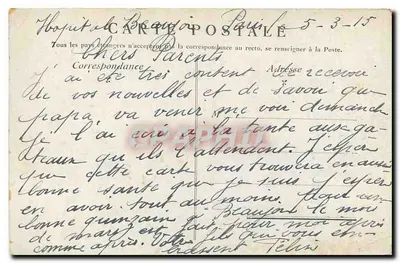 Hopital Beaujon Paris le 5-3-15
CARTE POSTALE
Tous les pays étrangers n'acceptent pas la correspondance au recto, se renseigner à la Poste.
Chers Parents
Correspondance Adresse
j'ai été très content recevoir
de vos nouvelles et de savoir que
papa va venir me voir dimanche
je l'ai écri a la tante aux ga
teaux qu'ils l'attendent. J'espère
que cette carte vous trouvera en aussi
bonne santé que je suis j'espère
en avoir tout au moins
bonne quinzain a Beaujon le mois
de mars est fait pour moi après
comme après. Votre fils qui vous em
brassent Félix